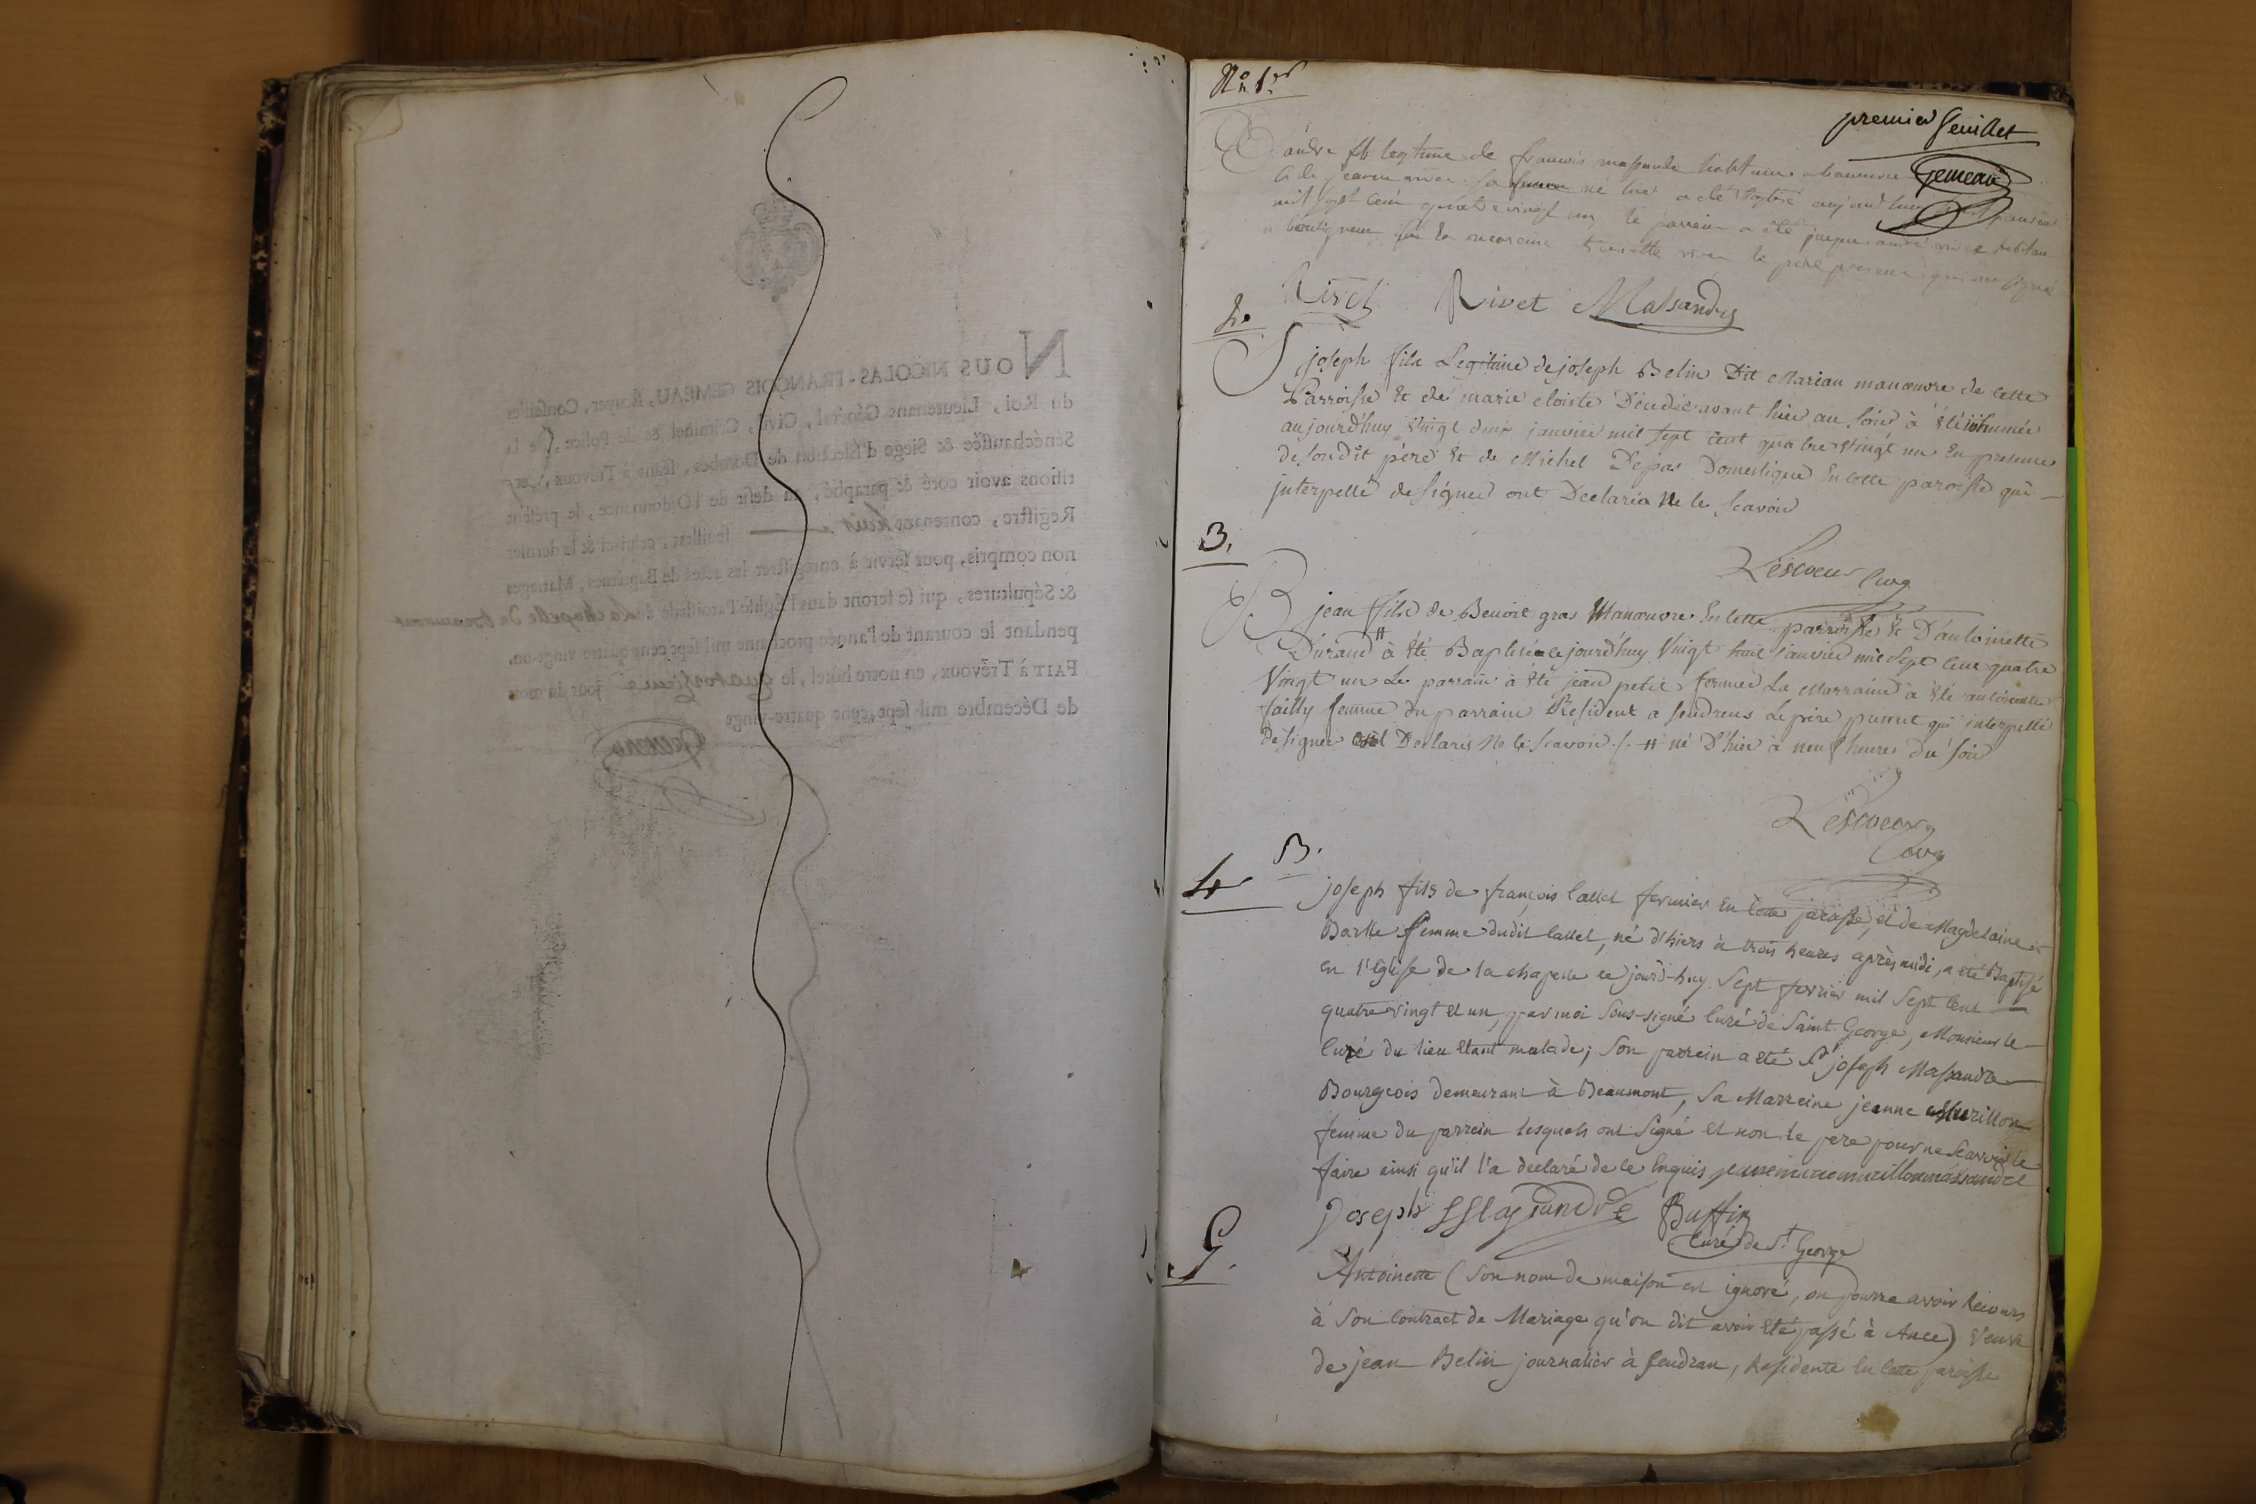 No 1er
premier feuillet
Gemeau
andré fils legitime de françois massandre habitant a beaumont
et de jeanne rivet sa femme né hier a été baptisé aujourd'huy
mil sept cent quatre vingt un, le parrain a été andré rivet
la marraine rivet le père present qui ont signé
Rivet Rivet Massandre
2.
S joseph fils Legitime de joseph Belin Dit Marian manoeuvre de cette
Parroisse Et de marie cloiste Décédé avant hier au soir à été inhumée
aujourd'huy Vingt deux janvier mil sept cent quatre Vingt un En presence
de son dit pére Et de Michel Depas Domestique En cette paroisse qui
interpellé de signer ont Declaré Ne le scavoir
Lescoeur Curé
3.
B jean fils de Benoit gras Manoeuvre En cette parroisse Et D'antoinette
Durand # à été Baptisé ce jourd'huy Vingt huit janvier mil sept cent quatre
Vingt un Le parrain à été jean petit fermier La Marraine à été antoinette
failly femme du parrain Résident a fendrens Le pére present qui interpellé
de signer ont Declaré Ne le scavoir ./. # né D'hier à neuf heures du soir
Lescoeur
Curé
4
B.
joseph fils de françois Callet fermier en cette paroisse, et de Magdelaine
Barlle femme dudit Callet, né d'hiers à trois heures après midi, a été Baptisé
en l'Eglise de la chapelle ce jourd-huy Sept fevrier mil Sept Cent
quatre vingt et un, par moi Sous-signé Curé de Saint George, Monsieur le
Curé du lieu etant malade; Son parrein a eté Sr joseph Massandre
Bourgeois demeurant à Beaumont, Sa Marreine jeanne Murillon
femme du parrein lesquels ont Signé et non le pere pour ne Scavoir le
faire ainsi qu'il l'a declaré de ce Enquis
Joseph Massandre Buffin
Curé de St George
5.
Antoinette (Son nom de maison est ignoré, on pourra avoir Recours
à Son Contract de Mariage qu'on dit avoir eté passé à Ance) Veuve
de jean Belin journalier à fendran, Residente En cette paroisse
NOUS NICOLAS-FRANÇOIS GEMEAU, Ecuyer, Conseiller
du Roi, Lieutenant Général, Civil, Criminel & de Police, en la
Sénéchaussée & Siege d'Election de Dombes, séant à Trévoux, certifions avoir coté & paraphé, au desir de l'Ordonnance, le présent
Registre, contenant huit feuillets, celui-ci & le dernier
non compris, pour servir à enregistrer les actes de Baptêmes, Mariages
& Sépultures, qui se feront dans l'Eglise Paroissiale de la Chapelle de beaumont
pendant le courant de l'année prochaine mil sept cent quatre-vingt-un.
FAIT à Trévoux, en notre hôtel, le quatorzieme jour du mois
de Décembre mil sept cent quatre-vingt
Gemeau